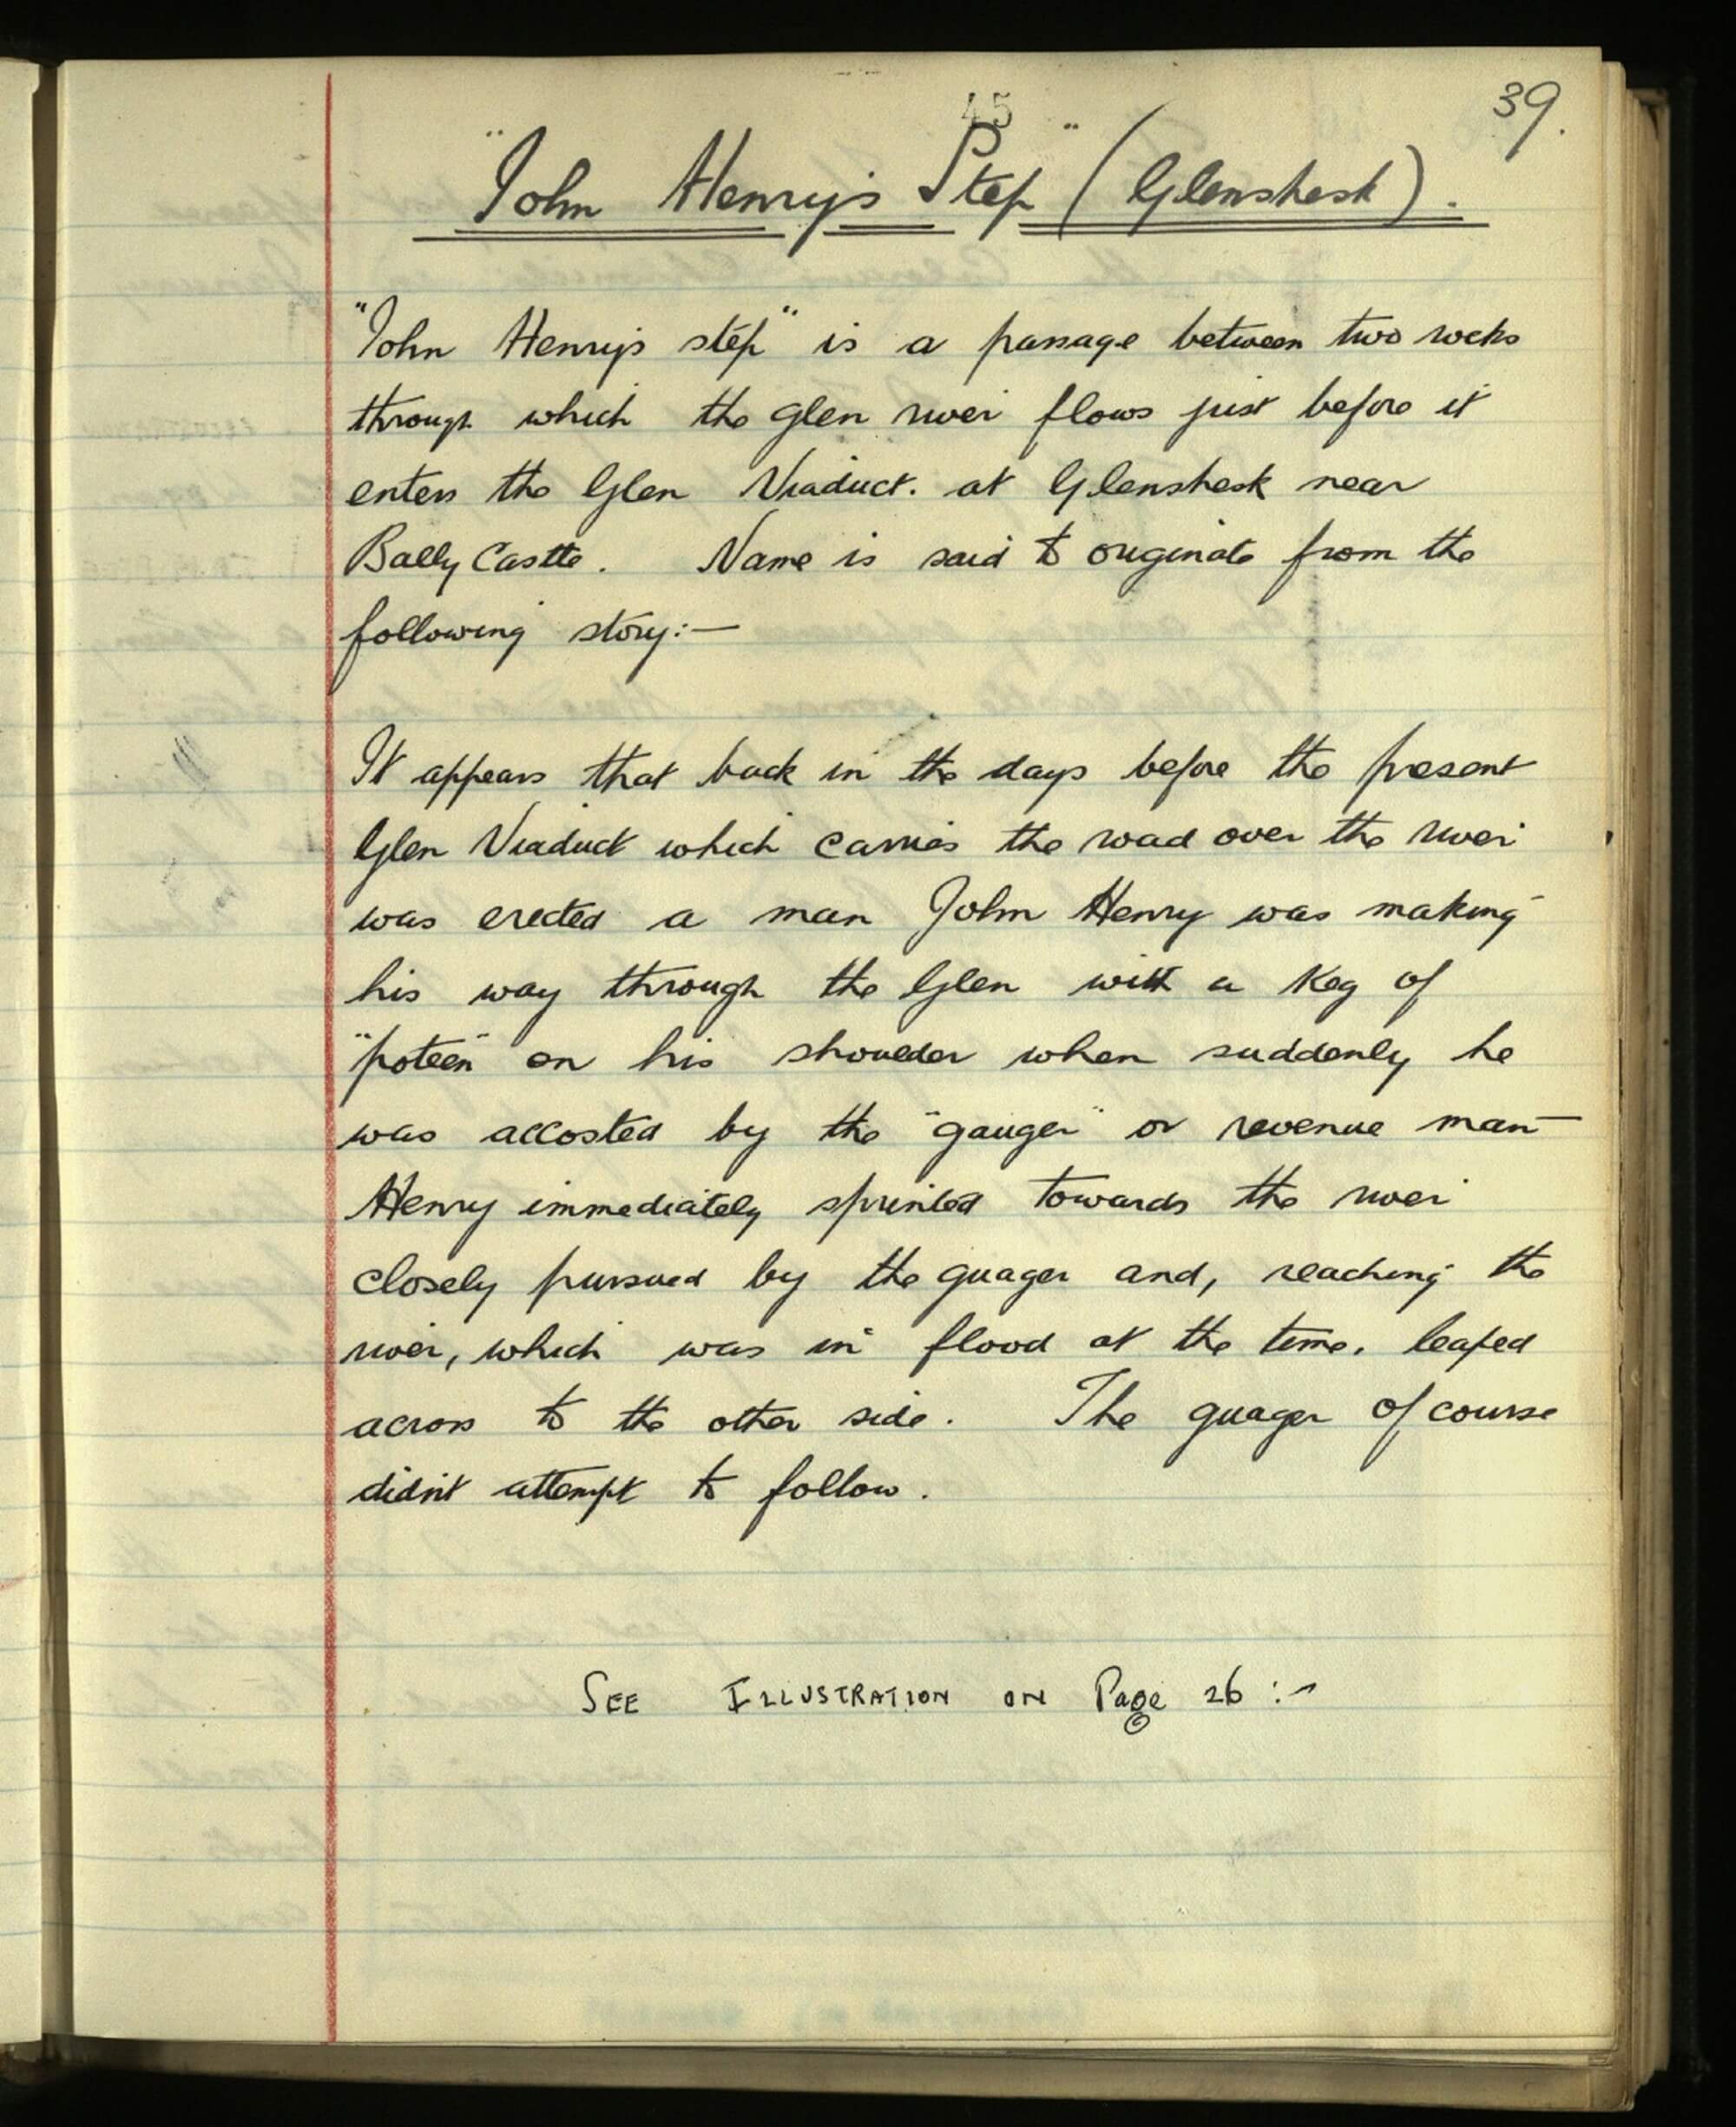 45
39.
"John Henry's Step" (Glenshesk).
"John Henry's step" is a passage between two rocks
through which the glen river flows just before it
enters the Glen Viaduct. at Glenshesk near
Bally Castle. Name is said to originate from the
following story:—
It appears that back in the days before the present
Glen Viaduct which carries the road over the river
was erected a man John Henry was making
his way through the Glen with a keg of
"poteen" on his shoulder when suddenly he
was accosted by the "gauger" or revenue man—
Henry immediately sprinted towards the river
closely pursued by the guager and, reaching the
river, which was in flood at the time, leaped
across to the other side. The guager of course
didn't attempt to follow.
SEE ILLUSTRATION ON Page 26 :-